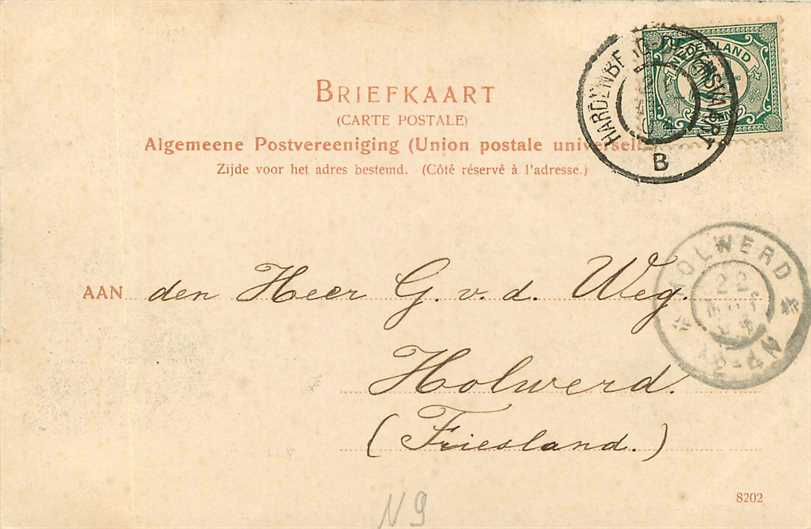 BRIEFKAART
(CARTE POSTALE)
Algemeene Postvereeniging (Union postale universelle)
Zijde voor het adres bestemd. (Côté réservé à l'adresse.)
NEDERLAND
B
HOLWERD
22
12-4N
AAN den Heer G. v. d. Weg.
Holwerd.
(Friesland.)
8202
N9